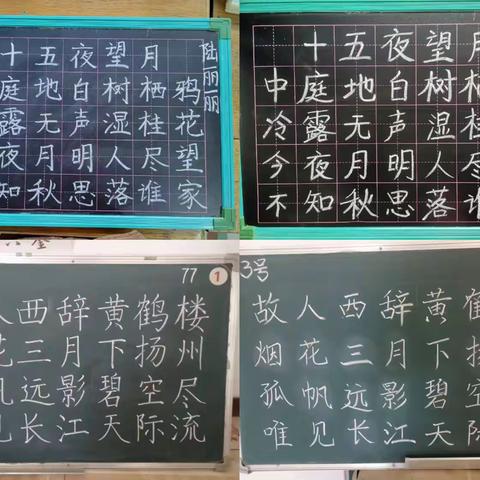 十五夜望月
陆丽丽
庭地白树栖鸦
露无声湿桂花
夜月明人尽望
知秋思落谁家
十五夜望月
中庭地白树栖
冷露无声湿桂
今夜月明人尽
不知秋思落谁
77 1
人西辞黄鹤楼
花三月下扬州
帆远影碧空尽
见长江天际流
3号
故人西辞黄鹤
烟花三月下扬
孤帆远影碧空
唯见长江天际